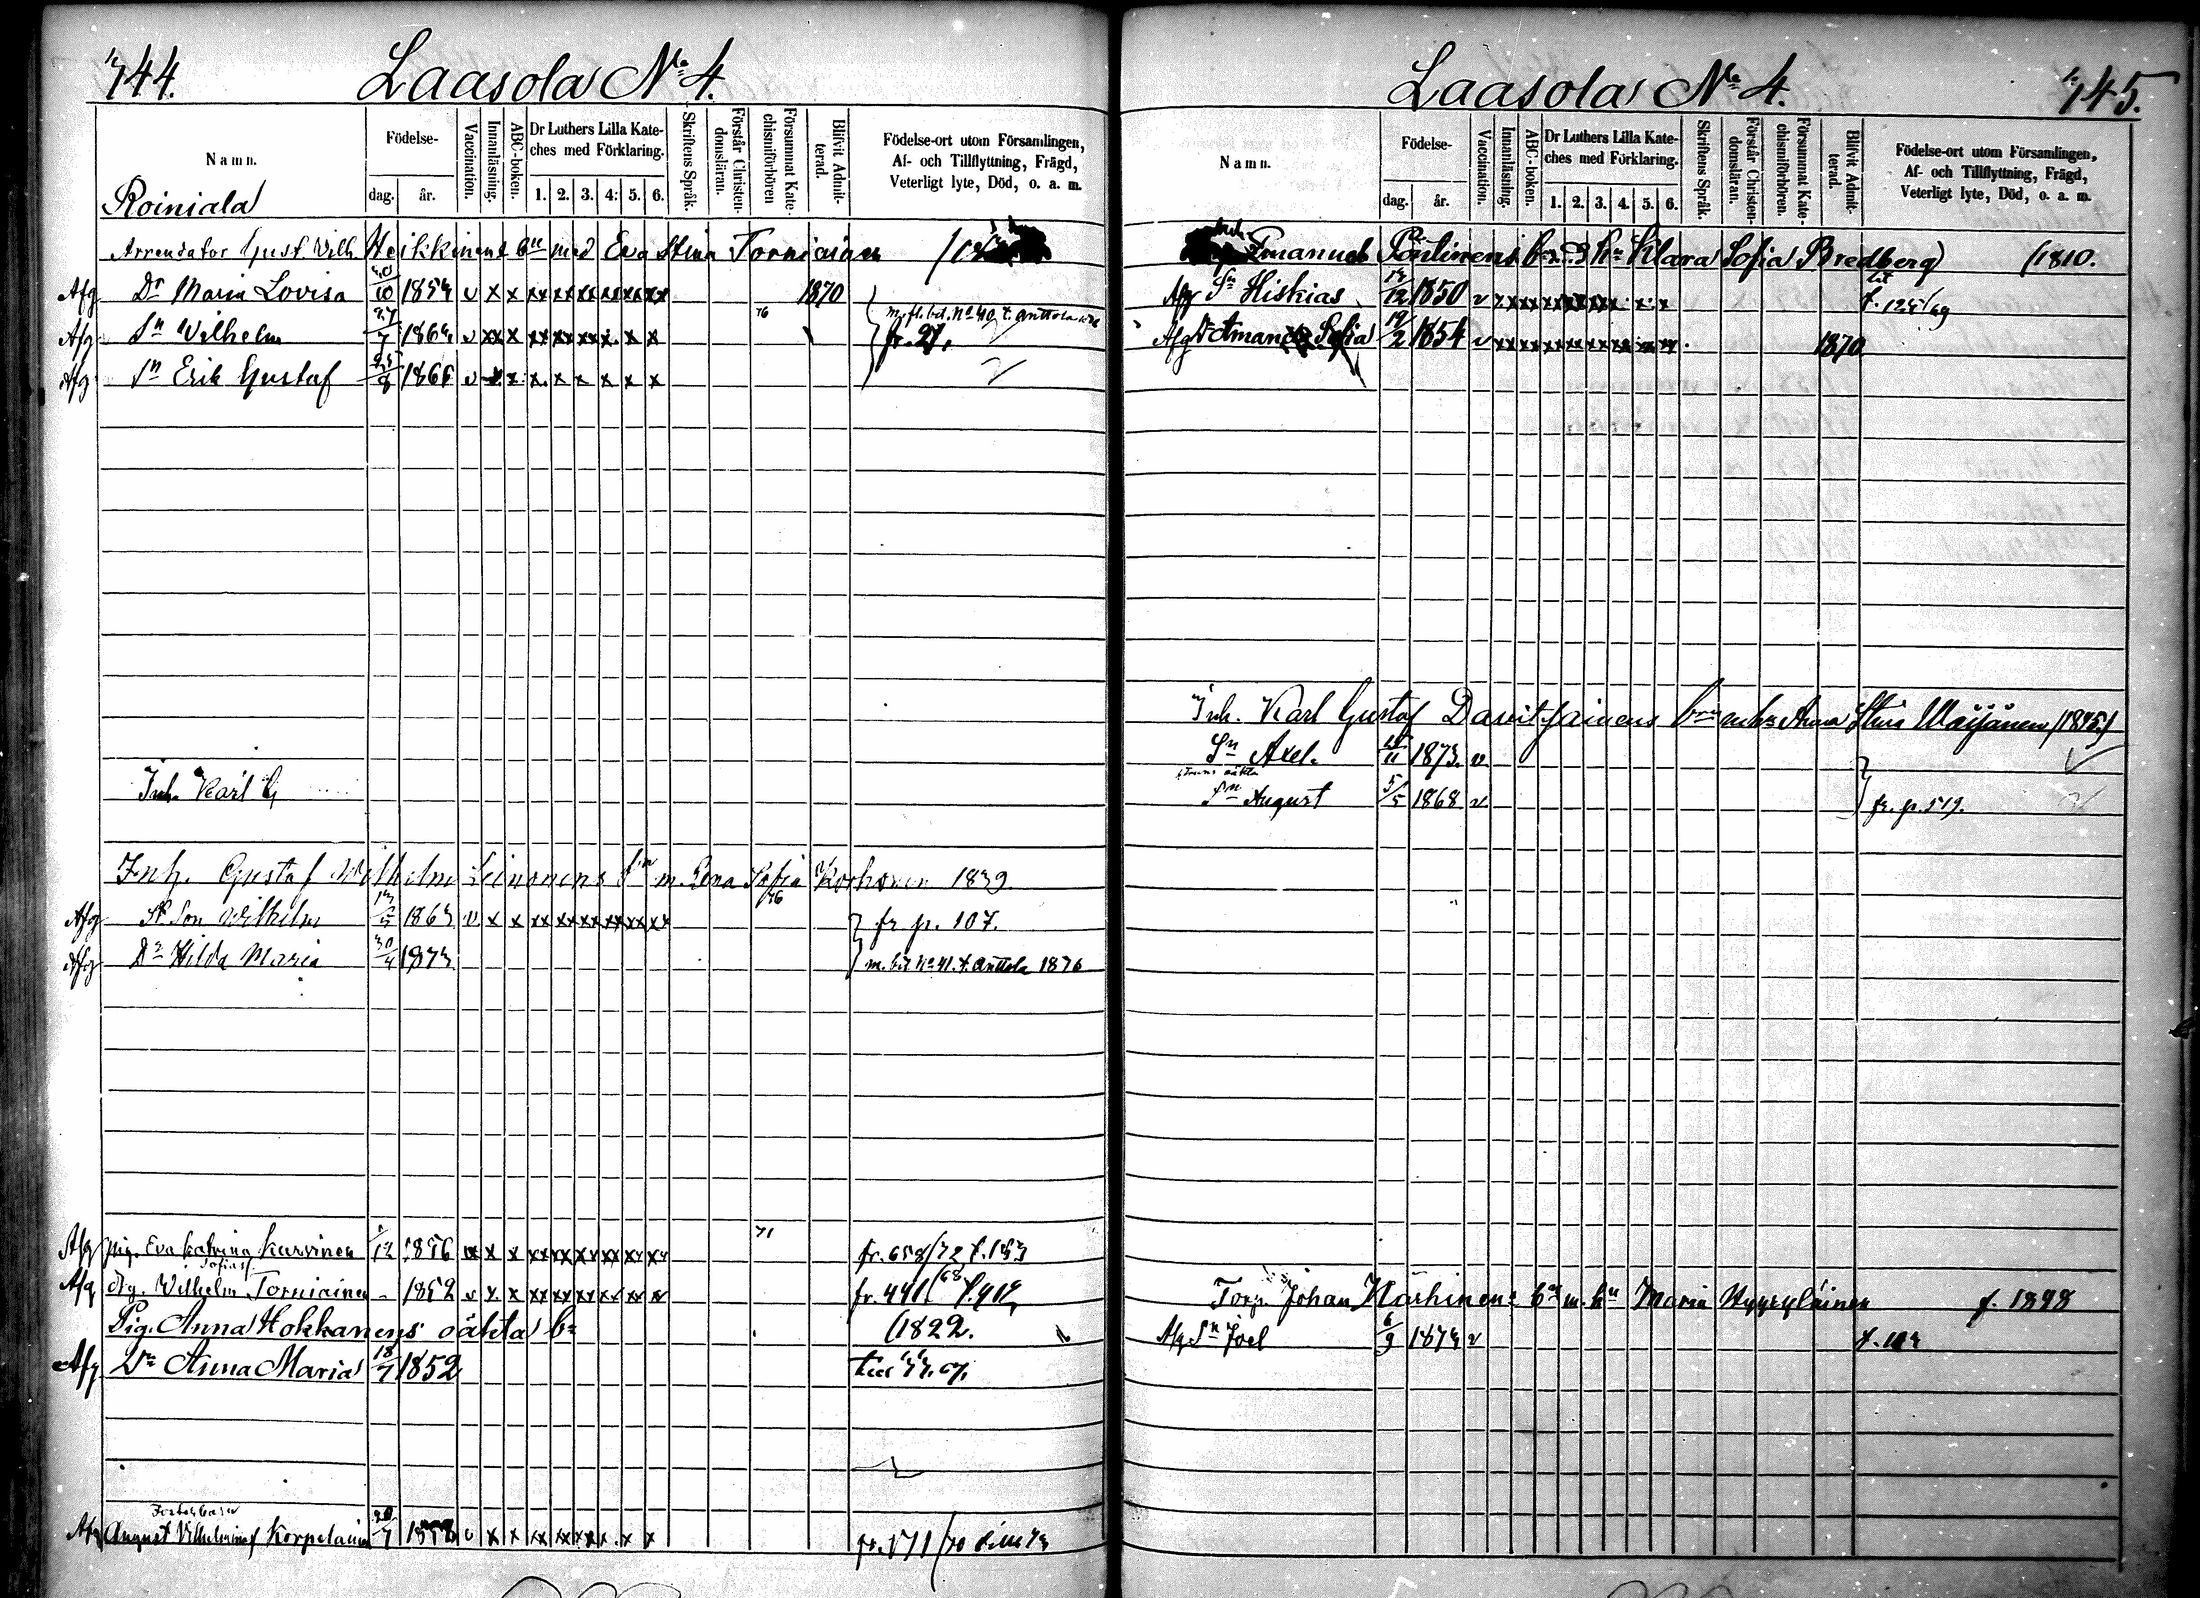 144. Laasola No 4.
Namn.
Födelse-
dag. år.
Vaccination.
Innanläsning.
ABC-boken.
Dr Luthers Lilla Kate-
ches med Förklaring.
1. 2. 3. 4. 5. 6.
Skriftens Språk.
Förstår Christen-
domsläran.
Försummat Kate-
chismiförhören
Blifvit Admit-
terad.
Födelse-ort utom Församlingen,
Af- och Tillflyttning, Frägd,
Veterligt lyte, Död, o. a. m.
Roiniala
Arrendator Gust. Vilh. Heikkinens bn med Eva Stina Torniainen
Afg Dr Maria Lovisa 30/10 1854 v x x xx xx xx xx xx xx 1870
Afg Sn Wilhelm 27/7 1864 v xx x xx xx xx x x x 76 fr. 27.
Afg Sn Erik Gustaf 25/8 1866 v x x x x x x x x
Inh. Karl G
Inh. Gustaf Wilhelm Leinonens bn m. Lena Sofia Korhonen 1839
Afg St Son Wilhelm 1863 v x x xx xx xx xx xx xx 76 fr p. 107.
Afg Dr Hilda Maria 30/4 1873 m. bet. No 41. t. Anttola 1876
Afg Pig. Eva Katrina Kurvinen /12 1856 x x xx xx xx xx xx xx 71 fr. 658/72 t. 153
Afg Drg. Wilhelm Torniainen - 1852 v x x xx xx xx xx xx xx fr. 441/68
Pig. Anna Hokkanens oäkta b. (1822.
Afg Dr Anna Maria 18/7 1852
Fosterbarn
Afg August Vilhelm Korpelainen 20/7 1858 v x x xx xx xx x. x x fr. 171/70
Laasola No 4. 145.
Namn.
Födelse-
dag. år.
Vaccination.
Innanläsning.
ABC-boken.
Dr Luthers Lilla Kate-
ches med Förklaring.
1. 2. 3. 4. 5. 6.
Skriftens Språk.
Förstår Christen-
domsläran.
Försummat Kate-
chismiförhören.
Blifvit Admit-
terad.
Födelse-ort utom Församlingen,
Af- och Tillflyttning, Frägd,
Veterligt lyte, Död, o. a. m.
Inh. Emanuel Pöntinens b. hu Klara Sofia Bredberg (1810.
Afg Sn Hiskias 1850 v t. 125/69
Afg Dr Amanda Sofia 19/2 1854 v 1870
Inh. Karl Gustaf Davitsainens bn m hu Anna Stina Väisänen (1845)
Sn Axel. /11 1873. v.
Sn August 5/5 1868 v fr. p. 519.
Torp. Johan Härkinens bn m. hu Maria Hyyryläinen f. 1848
Afg Sn Joel 6/9 1874 v